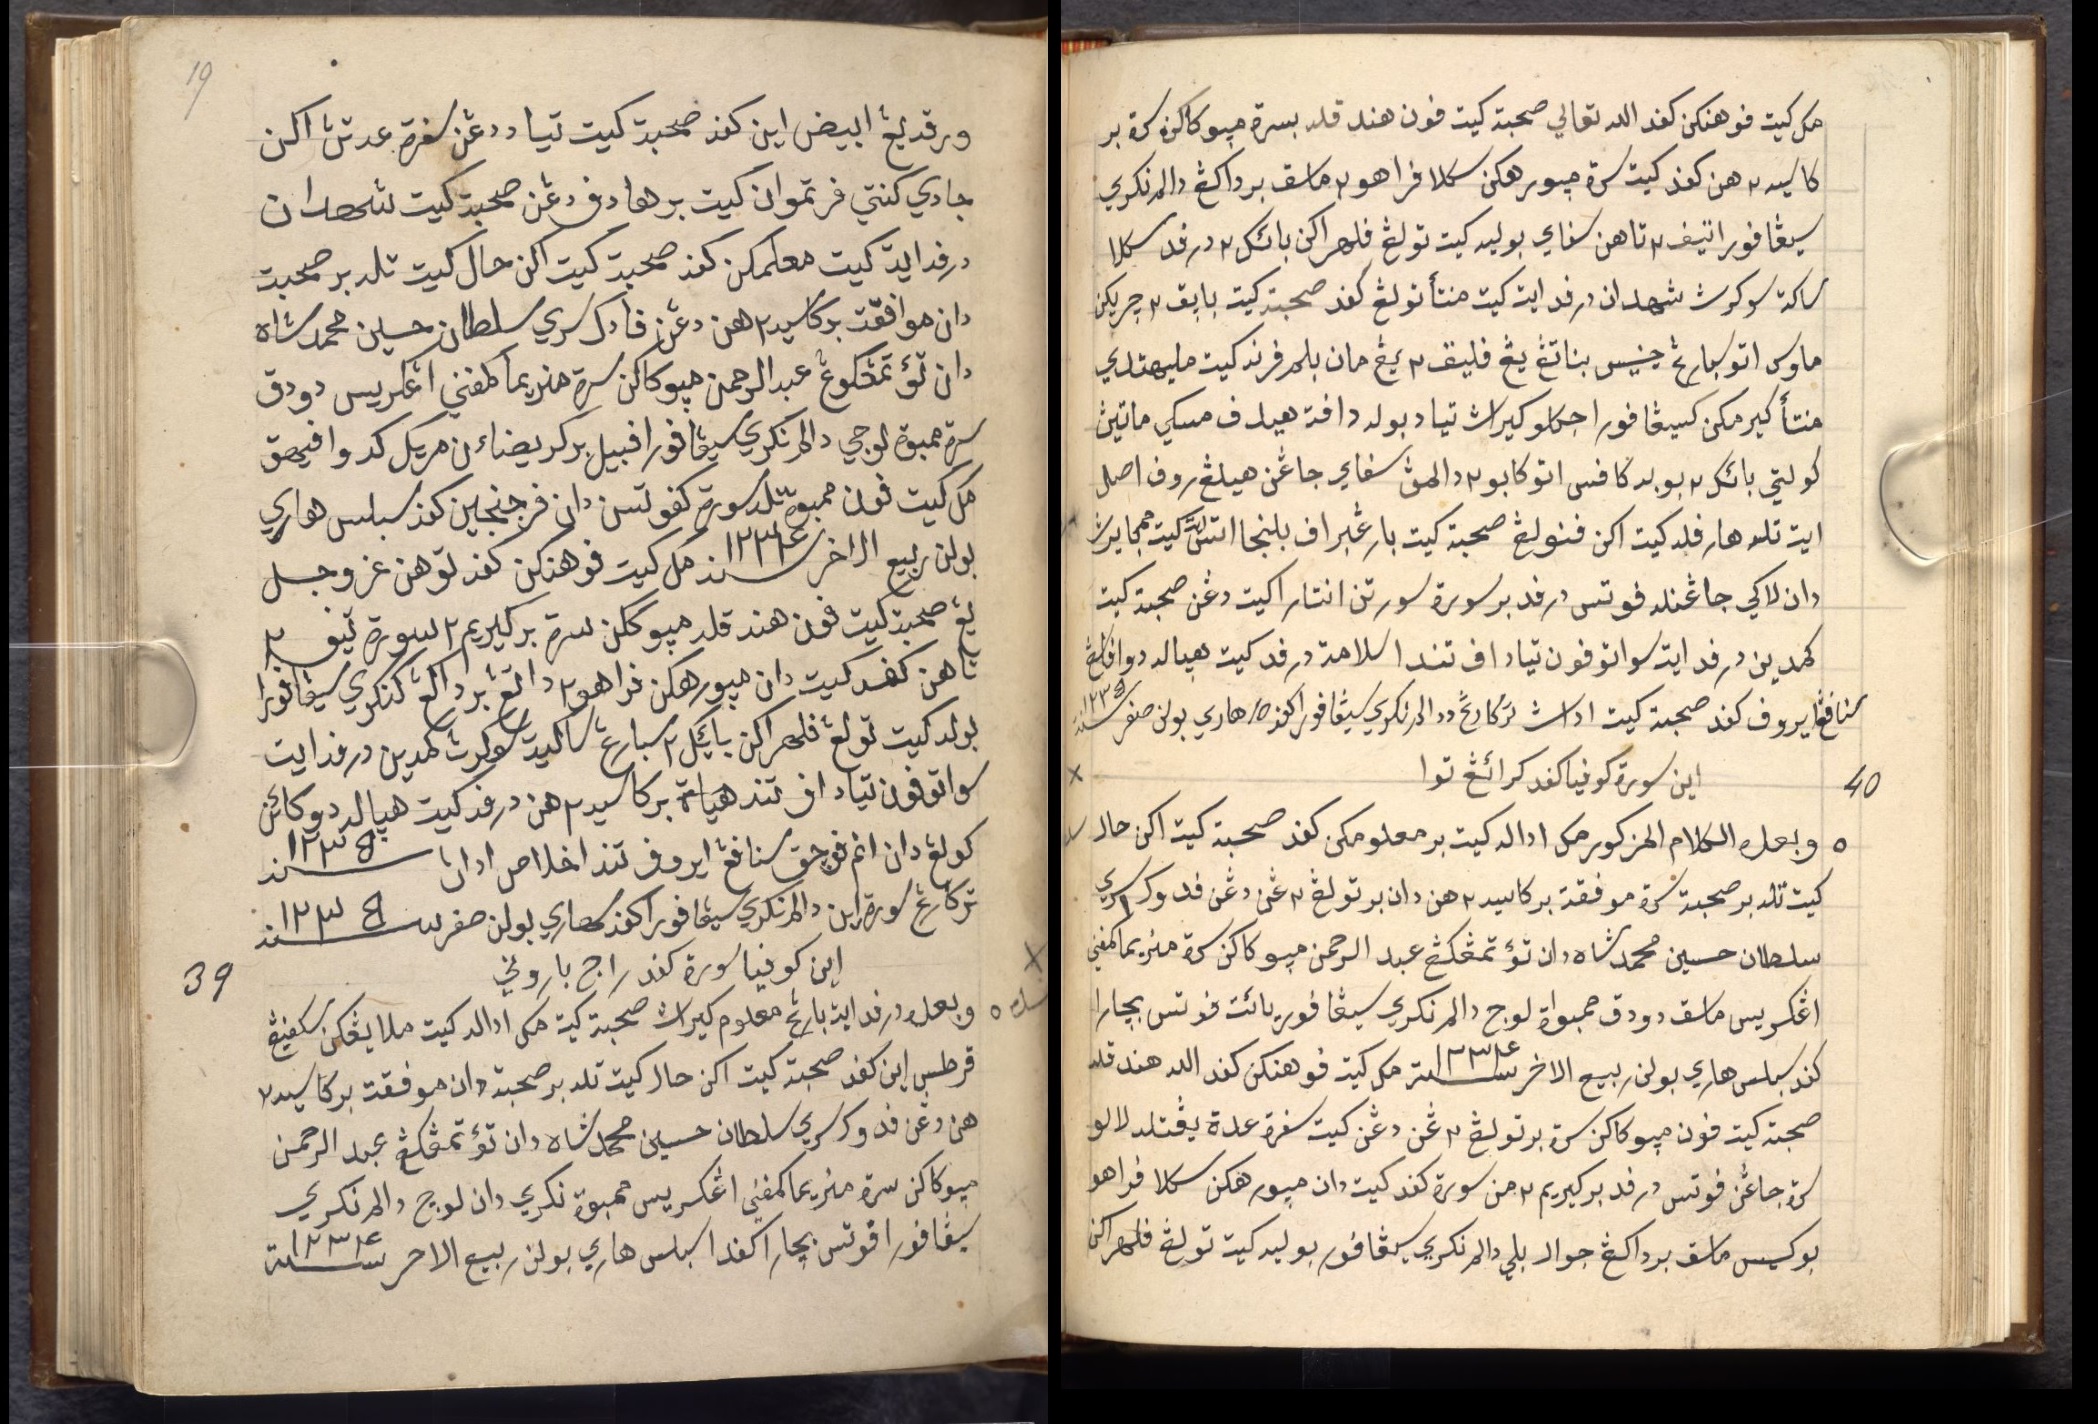 19
ورقه يڠ ابيض اين كفد صحبة كيت تيادد دڠن سفرة عدتڽ اكن
جادي كنتي فرتموان كيت برهادفن دڠن صحبة كيت شهدان
درفد ايت كيت معلمكن كفد صحبة كيت اكن حال كيت تله برصحبت
دان موافقت بركاسيه٢هن دڠن فادك سري سلطان حسين محمد شاه
دان تؤ تمڠكوڠ عبد الرحمن مپوكاكن سرة منريما كمفني اڠكريس دودق
سرة ممبوة لوجي دالم نكري سيڠافورا افبيل بركريضاءن مريكئيت كدوا فيهق
مك كيت فون ممبوة تله سورة كفوتسن دان فرجنجين كفد سبلس هاري
بولن ربيع الاخر سنة ١٢٣٤ مك كيت فوهنكن كفد توهن عز وجل
يڠ صحبة كيت فون هندقله مپوككن سرة بركيريم٢ سورة تيف٢
تاهن كفد كيت دان مپورهكن فراهو٢ داتڠ برداڠڠ كنكري سيڠافورا
بوله كيت تولڠ فلهراكن باݢي٢ سبارڠ ساكيت سوكرڽ كمدين درفد ايت
سواتوفون تياد اف تند حياة بركاسيه٢هن درفد كيت هپاله دوكائن
كولڠ دان ائم فوجق سنافڠ ايروف تند اخلاص اداڽ سنة ١٢٣٥
تركارڠ سورة اين دالم نكري سيڠافورا كفد هاري بولن صفر سنة ١٢٣٥
اين كوفيا سورة كفد راج باروني
39
وبعده درفد ايت بارڠ معلوم كيراڽ صحبة كيت مك اداله كيت ملايڠكن سكفيڠ
قرطس اين كفد صحبة كيت اكن حال كيت تله برصحبة دان موفقت بركاسيه٢
هن دڠن فدوك سري سلطان حسين محمد شاه دان تؤ تمڠكڠ عبد الرحمن
مپوكاكن سرة منريما كمفني اڠكريس ممبوة نكري دان لوج دالم نكري
سيڠافورا فوتس بچارا كفدا سبلس هاري بولن ربيع الاخر سنة ١٢٣٤
مك كيت فوهنكن كفد الله تعالي صحبة كيت فون هندقله بسرة مپوكاكن سرة بر
كاسيه٢هن كفد كيت سرة مپورهكن سكلا فراهو٢ ماسق برداكڠ دالم نكري
سيڠافورا تيف٢ تاهن سفاي بوليه كيت تولڠ فلهراكن باݢي٢ درفد سكلا
ساكة سوكرڽ شهدان درفد ايت كيت منتأ تولڠ كفد صحبة كيت بايق٢ چريكن
ماوس اتو سبارڠ جنيس بناتڠ يڠ فليق٢ يڠ مان بلم فرنه كيت مليهتدي
منتأ كيرمكن كسيڠافورا جكلو كيراڽ تياد بوله دافة هيدف مسكي ماتيڽ
كوليتي باݢي٢ بوبه كافس اتو كابو٢ دالمڽ سفاي جاڠن هيلڠ روف اصل
ايت تله هارفله كيت اكن فنولڠ صحبة كيت بارڠبراف بلنجا اتسڽ كيت ممبايرڽ
دان لاكي جاڠنله فوتس درفد برسورة سورتن انتارا كيت دڠن صحبة كيت
كمدين درفد ايت سواتوفون تياد اف تند اسلامة درفد كيت هپاله دوا فوچڠ
سنافڠ ايروف كفد صحبة كيت اداڽ تركارڠ ددالم نكري سيڠافورا كفد ١٥ هاري بولن صفر سنة ١٢٣٥
اين سورة كوفيا كفد كرائڠ توا
40
وبعده الكلام المذكور مك اداله كيت برمعلومكن كفد صحبة كيت اكن حال
كيت تله برصحبة سرة موفقة بركاسيه٢هن دان برتولڠ٢ڠن دڠن فدوك سري
سلطان حسين محمد شاه دان تؤ تمڠكڠ عبد الرحمن مپوكاكن سرة منريما كمفني
اڠكريس ماسق دودق ممبواة لوج دالم نكري سيڠافور يائت فوتس بچارا
كفد سبلس هاري بولن ربيع الاخر سنة ١٢٣٤ مك كيت فوهنكن كفد الله هندقله
صحبة كيت فون مپوكاكن سرة برتولڠ٢ڠن دڠن كيت سفرة عدة يڠتله لالو
سرة جاڠن فوتس درفد بركيريم٢من سورة كفد كيت دان مپورهكن سكلا فراهو
بوݢيس ماسق برداݢڠ جوال بلي دالم نكري سيڠافور بوليه كيت تولڠ فلهراكن